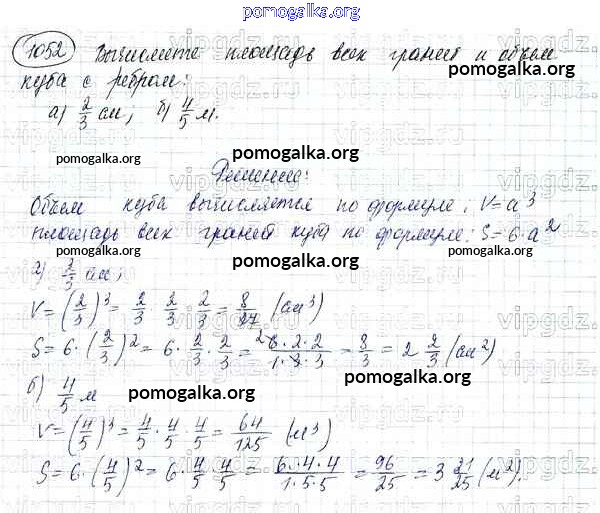 pomogalka.org
1052 Вычислите площадь всех граней и объем
куба с ребром:
а) 2/3 см; б) 4/5 м.
pomogalka.org pomogalka.org
pomogalka.org
Решение:
Объем куба вычисляется по формуле: V=a³
площадь всех граней куба по формуле: S=6·a²
pomogalka.org pomogalka.org
а) 2/3 см;
V=(2/3)³= 2/3 · 2/3 · 2/3 = 8/27 (см³)
S=6·(2/3)²= 6·2/3·2/3 = 6·2·2/1·3·3 = 8/3 = 2 2/3 (см²)
б) 4/5 м
pomogalka.org pomogalka.org
V=(4/5)³= 4/5 · 4/5 · 4/5 = 64/125 (м³)
S=6·(4/5)²= 6·4/5·4/5 = 6·4·4/1·5·5 = 96/25 = 3 21/25 (м²).
pomogalka.org